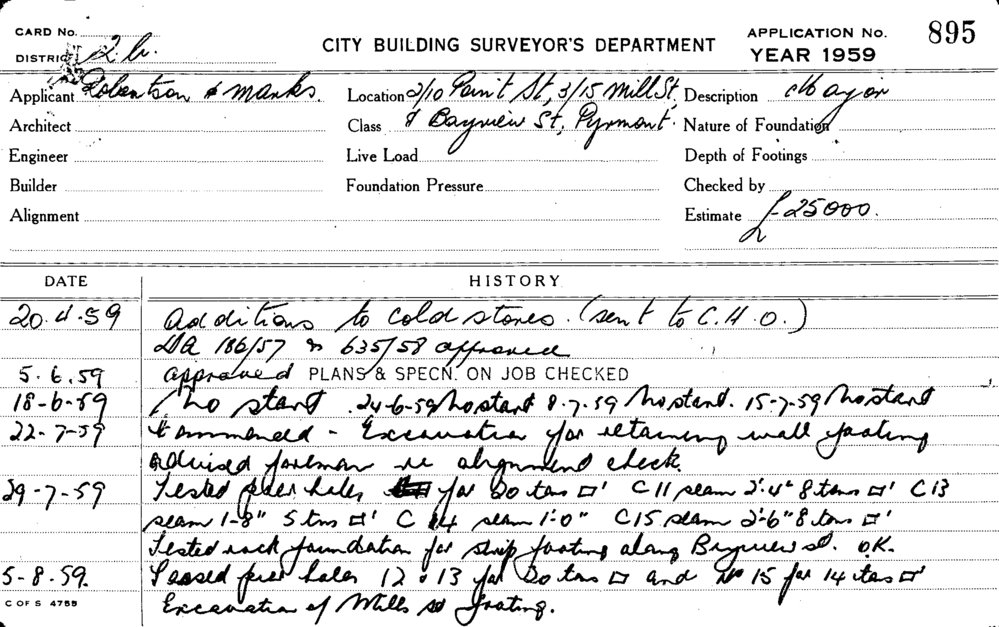 CARD No.
CITY BUILDING SURVEYOR'S DEPARTMENT
APPLICATION No. 895
DISTRICT 2b.
YEAR 1959
Applicant Robertson & Marks. Location 2/10 Point St, 3/15 Mill St, Description Major
Architect Class & Bayview St, Pyrmont. Nature of Foundation
Engineer Live Load Depth of Footings
Builder Foundation Pressure Checked by
Alignment Estimate £25000.
DATE HISTORY
20.4.59 Additions to cold stores. (sent to C.H.O.)
DA 186/57 & 635/58 approved
5.6.59 approved PLANS & SPECN. ON JOB CHECKED
18-6-59 No start 24-6-59 No start 8.7.59 No start. 15-7-59 No start
22-7-59 Commenced - Excavation for retaining wall footing
advised foreman re alignment check.
29-7-59 Tested pier holes for 20 tons □' C11 seam 2'-4" 8 tons □' C13
seam 1-8" 5 tns □' C 14 seam 1'-0" C15 seam 2'-6" 8 tons □'
Tested rock foundation for strip footing along Bayview St. O.K.
5-8-59. Passed pier holes 12 & 13 for 20 tons □ and No 15 for 14 tons □'
C OF S 4755
Excavation of Mills St footing.